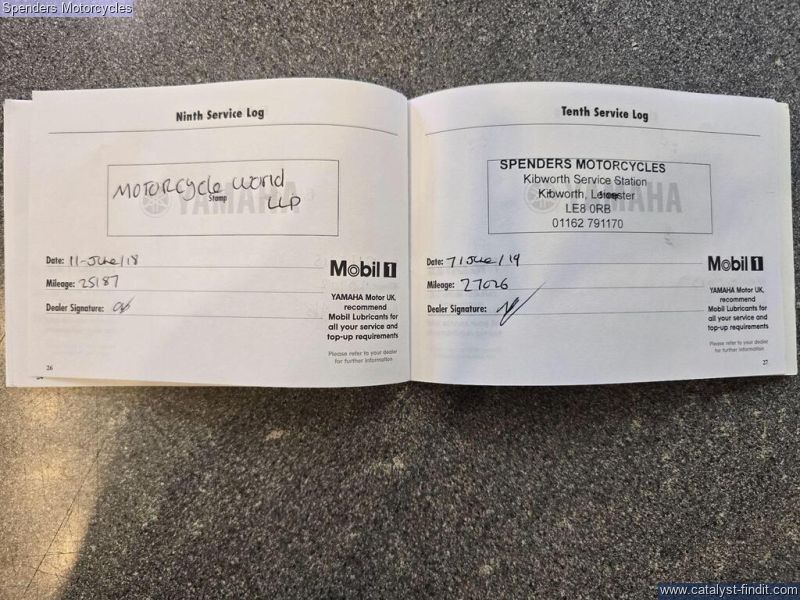 Spenders Motorcycles
Ninth Service Log
MOTORCYCLE WORLD
LLP
YAMAHA
Stamp
Date: 11-June/18
Mileage: 25187
Dealer Signature:
Mobil 1
YAMAHA Motor UK,
recommend
Mobil Lubricants for
all your service and
top-up requirements
Please refer to your dealer
for further information
26
Tenth Service Log
SPENDERS MOTORCYCLES
Kibworth Service Station
Kibworth, Leicester
LE8 0RB
01162 791170
YAMAHA
Date: 7/June/19
Mileage: 27026
Dealer Signature:
Mobil 1
YAMAHA Motor UK,
recommend
Mobil Lubricants for
all your service and
top-up requirements
Please refer to your dealer
for further information
27
www.catalyst-findit.com